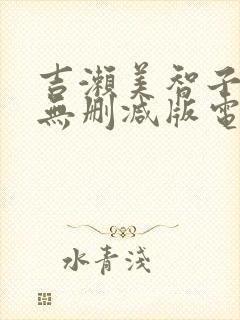 吉瀨美智子
無刪減版電
水青淺